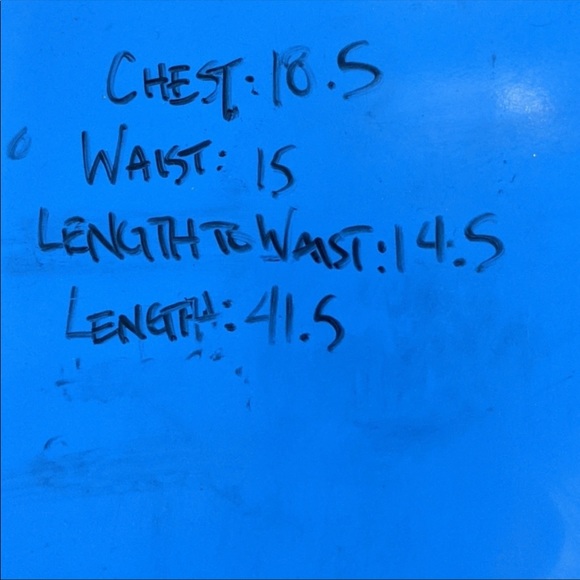 CHEST: 18.5
WAIST: 15
LENGTH TO WAIST: 14.5
LENGTH: 41.5